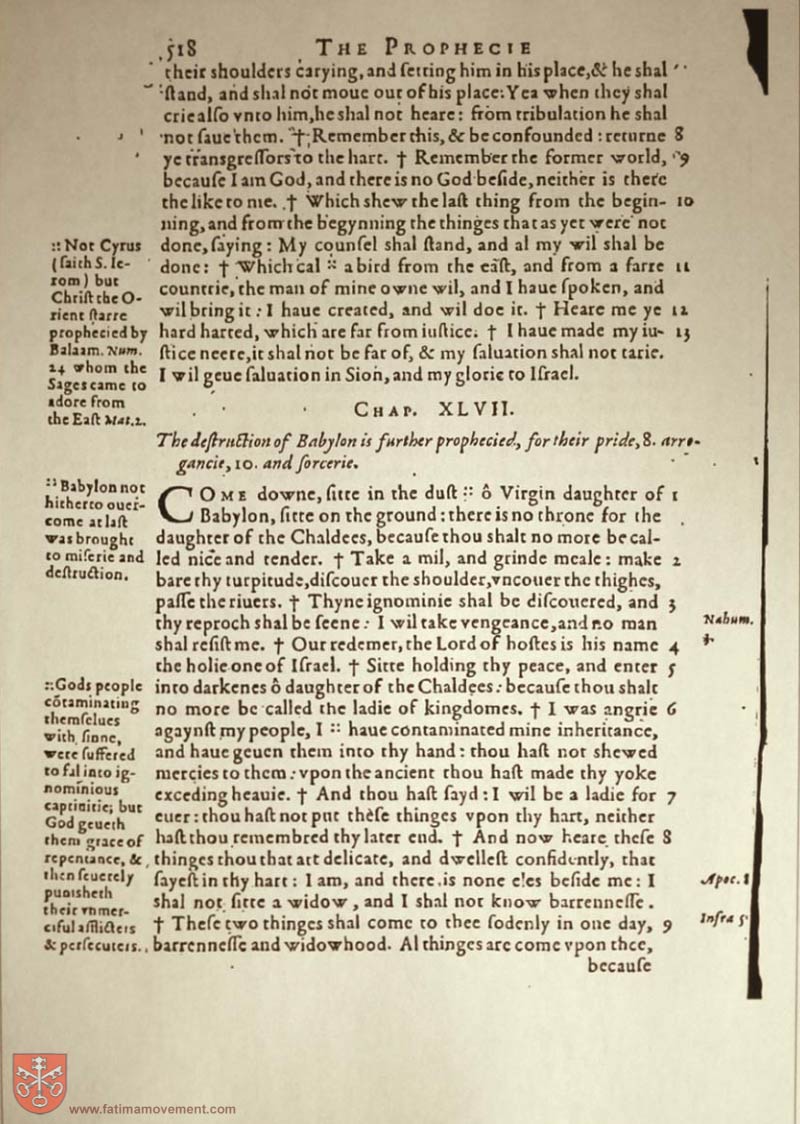 518 THE PROPHECIE
their shoulders carying, and ſetting him in his place, & he shal
ſtand, and shal not moue out of his place. Yea when they shal
crie alſo vnto him, he shal not heare: from tribulation he shal
not ſaue them. † Remember this, & be confounded: returne 8
ye tranſgreſſors to the hart. † Remember the former world, 9
becauſe I am God, and there is no God beſide, neither is there
the like to me. † Which shew the laſt thing from the begin- 10
ning, and from the begynning the thinges that as yet were not
done, ſaying: My counſel shal ſtand, and al my wil shal be
done: † Which cal :: a bird from the eaſt, and from a farre 11
countrie, the man of mine owne wil, and I haue ſpoken, and
wil bring it: I haue created, and wil doe it. † Heare me ye 12
hard harted, which are far from iuſtice. † I haue made my iu- 13
ſtice neere, it shal not be far of, & my ſaluation shal not tarie.
I wil geue ſaluation in Sion, and my glorie to Iſrael.
:: Not Cyrus
(ſaith S. Ie-
rom) but
Chriſt the O-
rient ſtarre
prophecied by
Balaam. Num.
24 whom the
Sages came to
adore from
the Eaſt Mat. 2.
CHAP. XLVII.
The deſtruction of Babylon is further prophecied, for their pride, 8. arro-
gancie, 10. and ſorcerie.
COME downe, ſitte in the duſt :: ô Virgin daughter of 1
Babylon, ſitte on the ground: there is no throne for the
daughter of the Chaldees, becauſe thou shalt no more be cal-
led nice and tender. † Take a mil, and grinde meale: make 2
bare thy turpitude, diſcouer the shoulder, vncouer the thighes,
paſſe the riuers. † Thyne ignominie shal be diſcouered, and 3
thy reproch shal be ſeene: I wil take vengeance, and no man
shal reſiſt me. † Our redemer, the Lord of hoſtes is his name 4
the holie one of Iſrael. † Sitte holding thy peace, and enter 5
into darkenes ô daughter of the Chaldees: becauſe thou shalt
no more be called the ladie of kingdomes. † I was angrie 6
agaynſt my people, I :: haue contaminated mine inheritance,
and haue geuen them into thy hand: thou haſt not shewed
mercies to them: vpon the ancient thou haſt made thy yoke
exceding heauie. † And thou haſt ſayd: I wil be a ladie for 7
euer: thou haſt not put theſe thinges vpon thy hart, neither
haſt thou remembred thy later end. † And now heare theſe 8
thinges thou that art delicate, and dwelleſt confidently, that
ſayeſt in thy hart: I am, and there is none eles beſide me: I
shal not ſitte a widow, and I shal not know barrenneſſe.
† Theſe two thinges shal come to thee ſodenly in one day, 9
barrenneſſe and widowhood. Al thinges are come vpon thee,
becauſe
:: Babylon not
hitherto ouer-
come at laſt
was brought
to miſerie and
deſtruction.
:: Gods people
cōtaminating
themſelues
with ſinne,
were ſuffered
to fal into ig-
nominious
captiuitie; but
God geueth
them grace of
repentance, &
then ſeuerely
punisheth
their vnmer-
ciful afflicters
& perſecuters.
Nahum.
Apoc. 1
Infra 5
www.fatimamovement.com